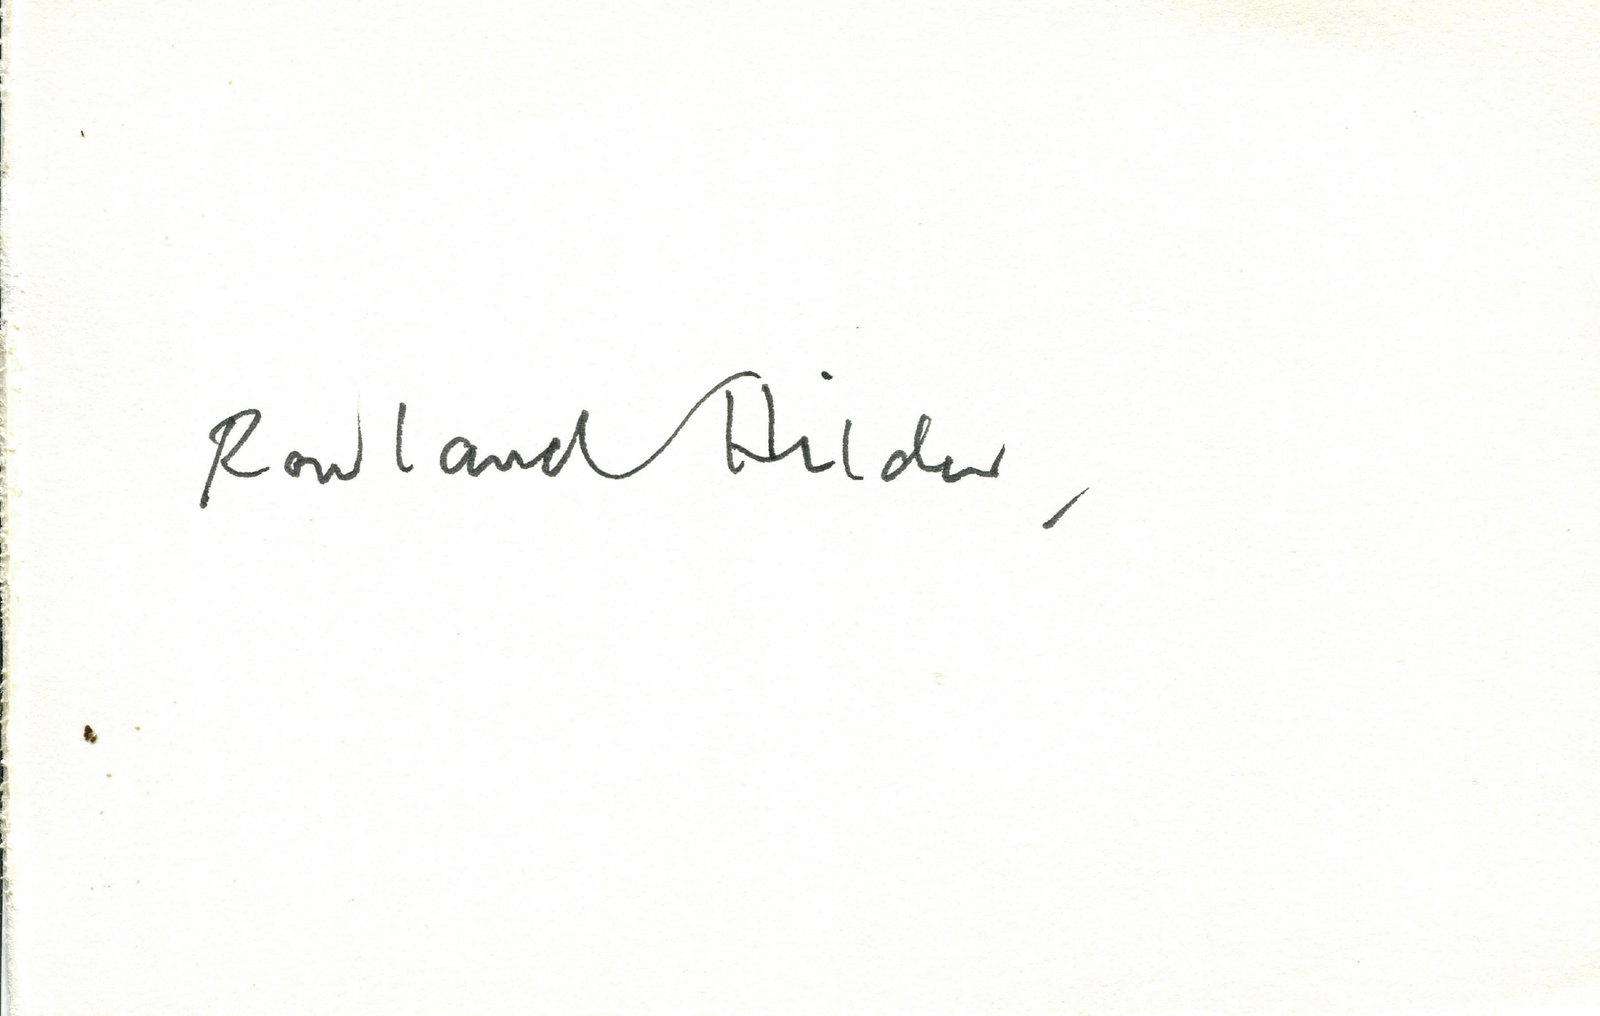 Rowland Hilder,